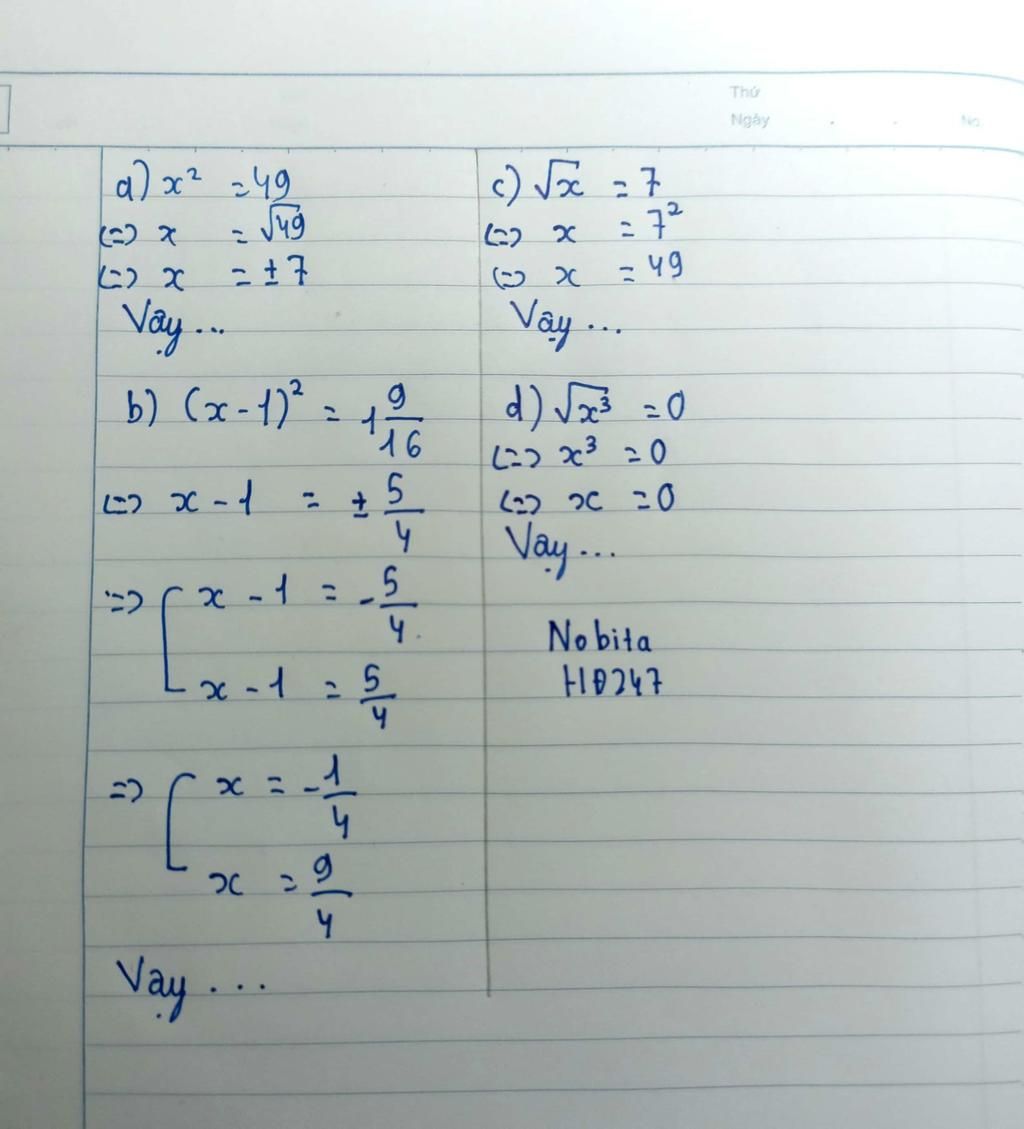 Thứ
Ngày
No
a) x² = 49
<=> x = √49
<=> x = ±7
Vậy...
b) (x-1)² = 1 9/16
<=> x - 1 = ± 5/4
=> [ x - 1 = -5/4
x - 1 = 5/4
=> [ x = -1/4
x = 9/4
Vậy ...
c) √x = 7
<=> x = 7²
<=> x = 49
Vậy ...
d) √x³ = 0
<=> x³ = 0
<=> x = 0
Vậy ...
Nobita
H0247